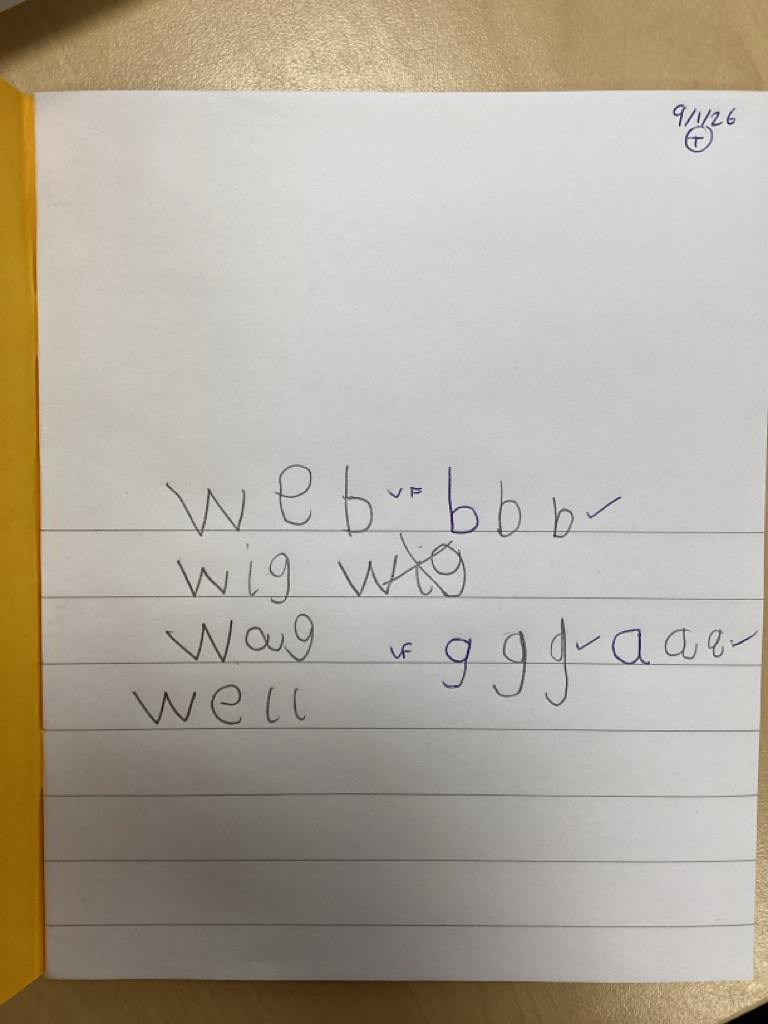 9/1/26
T
web VF b b b
wig wig
wag VF g g g a a a
well